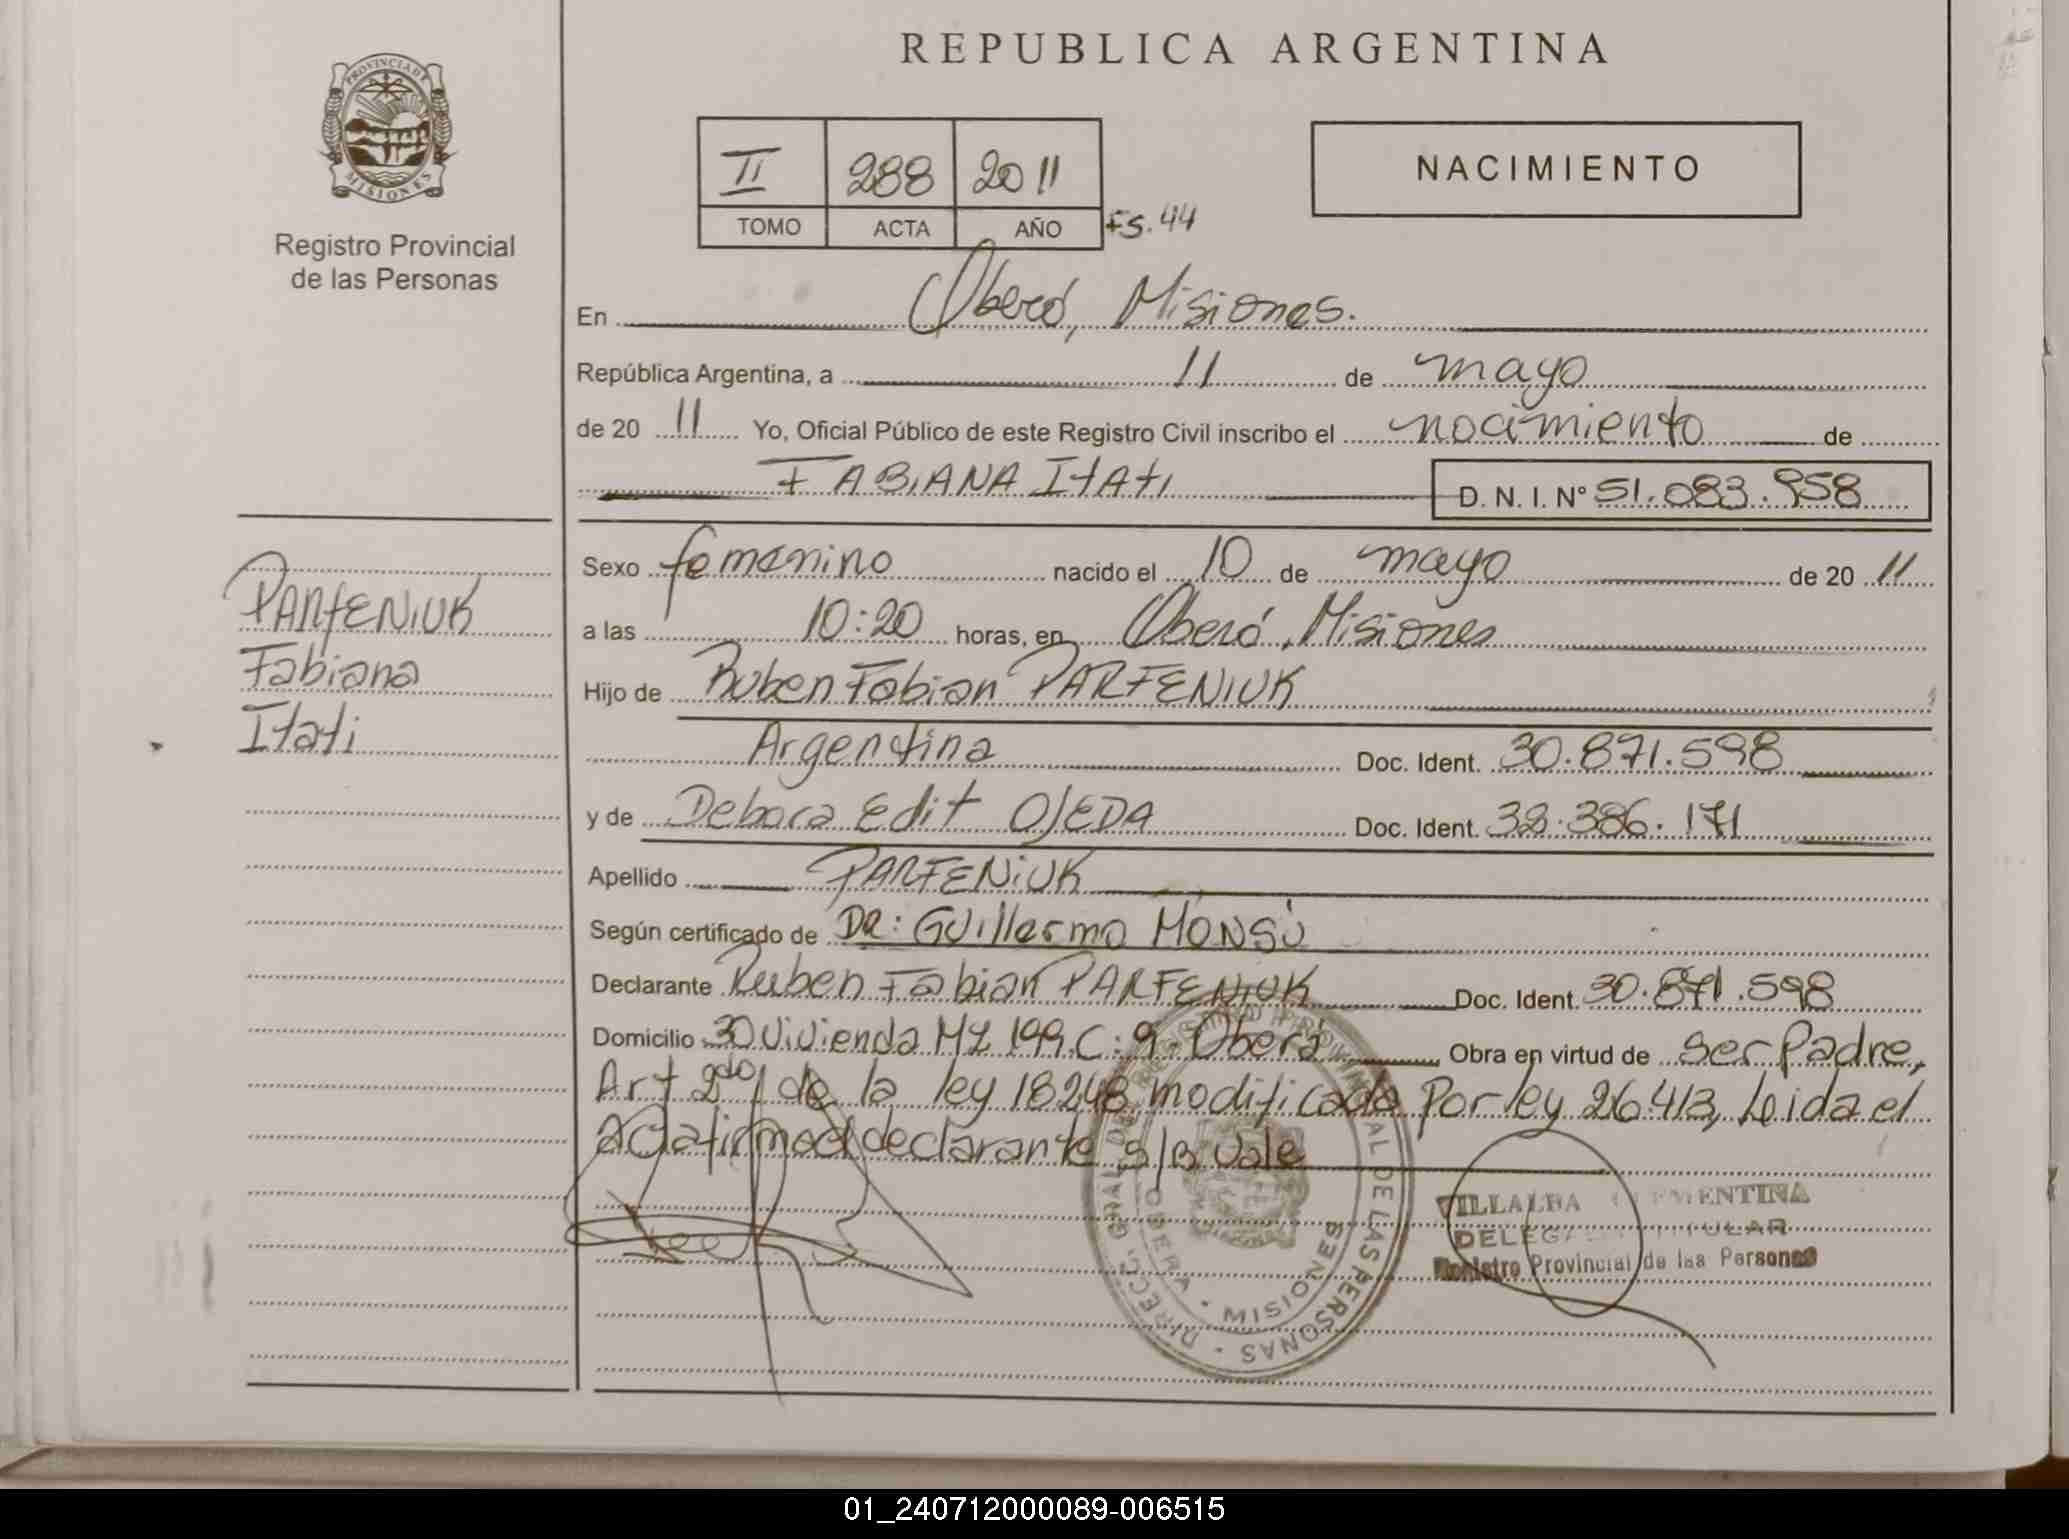 REPUBLICA ARGENTINA
PROVINCIA DE MISIONES
Registro Provincial
de las Personas
II 288 2011
TOMO ACTA AÑO Fs. 44
NACIMIENTO
En Oberá, Misiones.
República Argentina, a 11 de mayo
de 20 11 Yo, Oficial Público de este Registro Civil inscribo el nacimiento de
FABIANA ITATI D. N. I. N° 51.083.958
PARFENIUK
Fabiana
Itati
Sexo femenino nacido el 10 de mayo de 20 11
a las 10:20 horas, en Oberá, Misiones
Hijo de Ruben Fabian PARFENIUK
Argentina Doc. Ident. 30.871.598
y de Debora Edit OJEDA Doc. Ident. 38.386.171
Apellido PARFENIUK
Según certificado de DR: Guillermo MONSÚ
Declarante Ruben Fabian PARFENIUK Doc. Ident. 30.871.598
Domicilio 30 Vivienda Mz 199 C: 9. Oberá Obra en virtud de ser Padre,
Art 2do de la ley 18248 modificada Por ley 26.413, Leida el
Acta firma el declarante s/B vale
DIRECC. GRAL. DEL REGISTRO PROVINCIAL DE LAS PERSONAS
OBERA • MISIONES
VILLALBA CLEMENTINA
DELEGADA TITULAR
Registro Provincial de las Personas
01_240712000089-006515